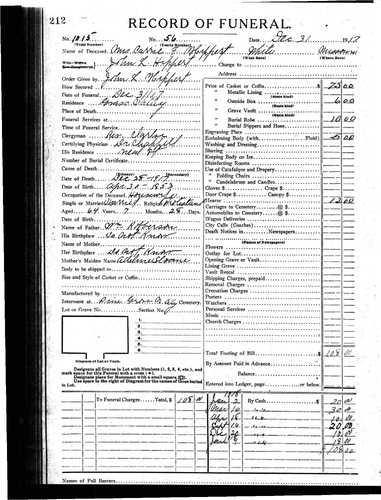 212
RECORD OF FUNERAL.
No. 1015 No. 56 Date, Dec 31 1917
(Total Number) (Yearly Number)
Name of Deceased, Mrs. Carrie White Missouri
(What Race) (Where Born)
John L. Charge to
Address
Order Given by John L.
How Secured
Date of Funeral Dec 31/17
Residence
Place of Death,
Funeral Services at
Time of Service
Clergyman Rev.
Certifying Physician Dr Chappell
His Residence
Number of Burial Certificate.
Cause of Death
Date of Death Dec 28-1917
Date of Birth Apr 30-1853
Occupation of the Deceased Housewife
Single or Married Married Religion
Aged 64 Years, 7 Months, 28 Days.
Name of Father,
His Birthplace Do Not Know
Name of Mother,
Her Birthplace Do Not Know
Mother's Maiden Name
Body to be shipped to
Size and Style of Casket or Coffin,
Manufactured by
Interment at Pine Grove Cemetery.
Lot or Grave No. Section No.
Diagram of Lot or Vault.
Designate all Graves in Lot with Numbers (1, 2, 3, 4, etc.), and
mark space for this Funeral with a cross (+).
Designate place for Monument with a small square (□).
Use space to the right of Diagram for the names of those buried
in Lot.
Price of Casket or Coffin $ 75 00
(State kind)
" Metallic Lining
" Outside Box 6 00
(State kind)
" Grave Vault
(State kind)
" Burial Robe 10 00
" Burial Slippers and Hose
Engraving Plate
Embalming Body (with Fluid) 5 00
Washing and Dressing
Shaving
Keeping Body on Ice
Use of Catafalque and Drapery
" Folding Chairs
" Candelabrum and Candles
Gloves $ Crape $
Hearse 12 00
Carriages to Cemetery @ $
Automobiles to Cemetery @ $
Wagon Deliveries
City Calls (Coaches)
Death Notices in Newspapers
(Names of Newspapers)
Flowers
Outlay for Lot
Opening Grave or Vault
Lining Grave
Vault Rental
Shipping Charges, prepaid
Removal Charges
Cremation Charges
Porters
Watchers
Personal Services
Music
Church Charges
Total Footing of Bill $ 108 00
By Amount Paid in Advance
Balance
Entered into Ledger, page or below.
To Funeral Charges Total, $ 108 00
1918
Jan 2 By Cash $ 20 00
Mar 10 " " 30 00
Apr 15 " " 10 00
Sept 16 " " 20 00
Dec 20 " "
Jan " " 18 00
108 00
Names of Pall Bearers.